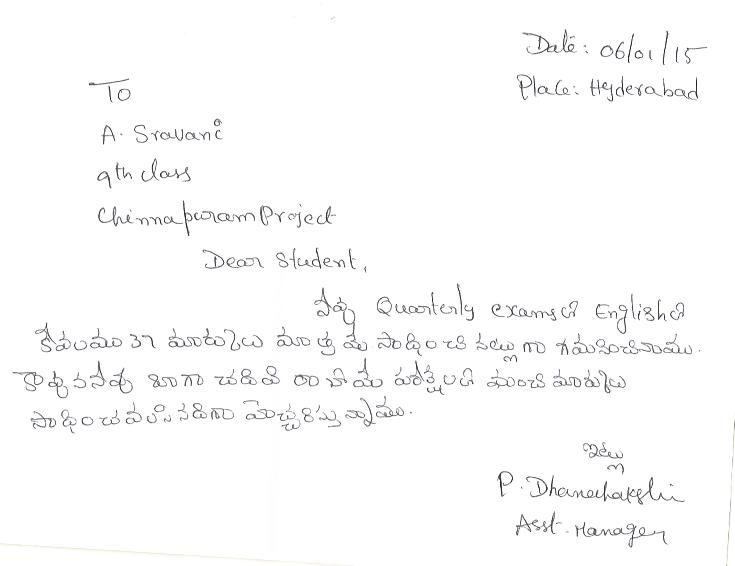 Date: 06/01/15
Place: Hyderabad
To
A. Sravani
9th class
Chinnapuram Project
Dear Student,
నీవు Quarterly examsలో Englishలో
కేవలము 37 మార్కులు మాత్రమే సాధించినట్లుగా గమనించినాము.
కావున నీవు బాగా చదివి రాబోయే పరీక్షలలో మంచి మార్కులు
సాధించవలసినదిగా హెచ్చరిస్తున్నాము.
ఇట్లు
P.
Asst. Manager